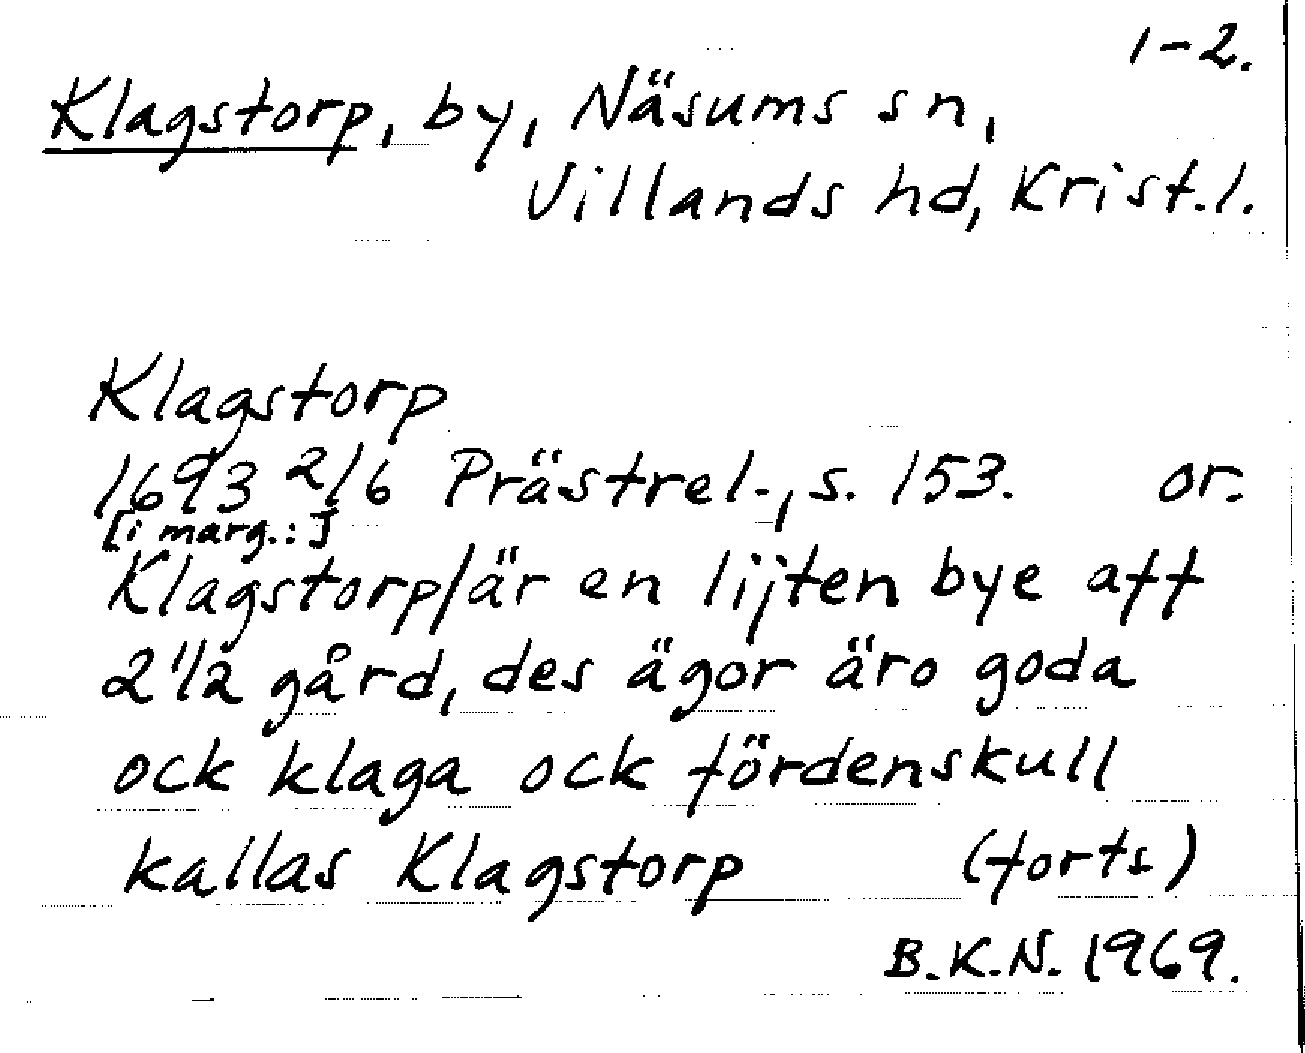 1-2.
Klagstorp, by, Näsums sn,
Villands hd, Krist.l.
Klagstorp
1693 2/6 Prästrel., s. 153. or.
[i marg.:]
Klagstorp/är en lijten bye aff
2 1/2 gård, des ägor äro goda
ock klaga ock fördenskull
kallas Klagstorp (forts.)
B.K.N. 1969.